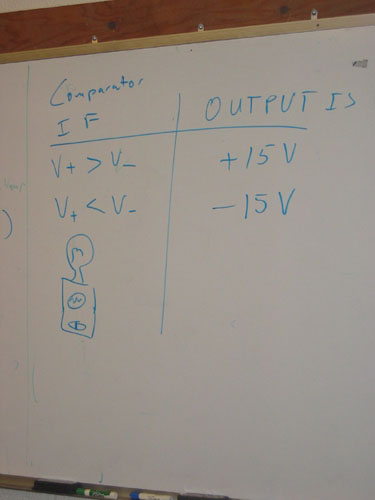 Comparator
IF
OUTPUT IS
V+ > V-
+15V
V+ < V-
-15V